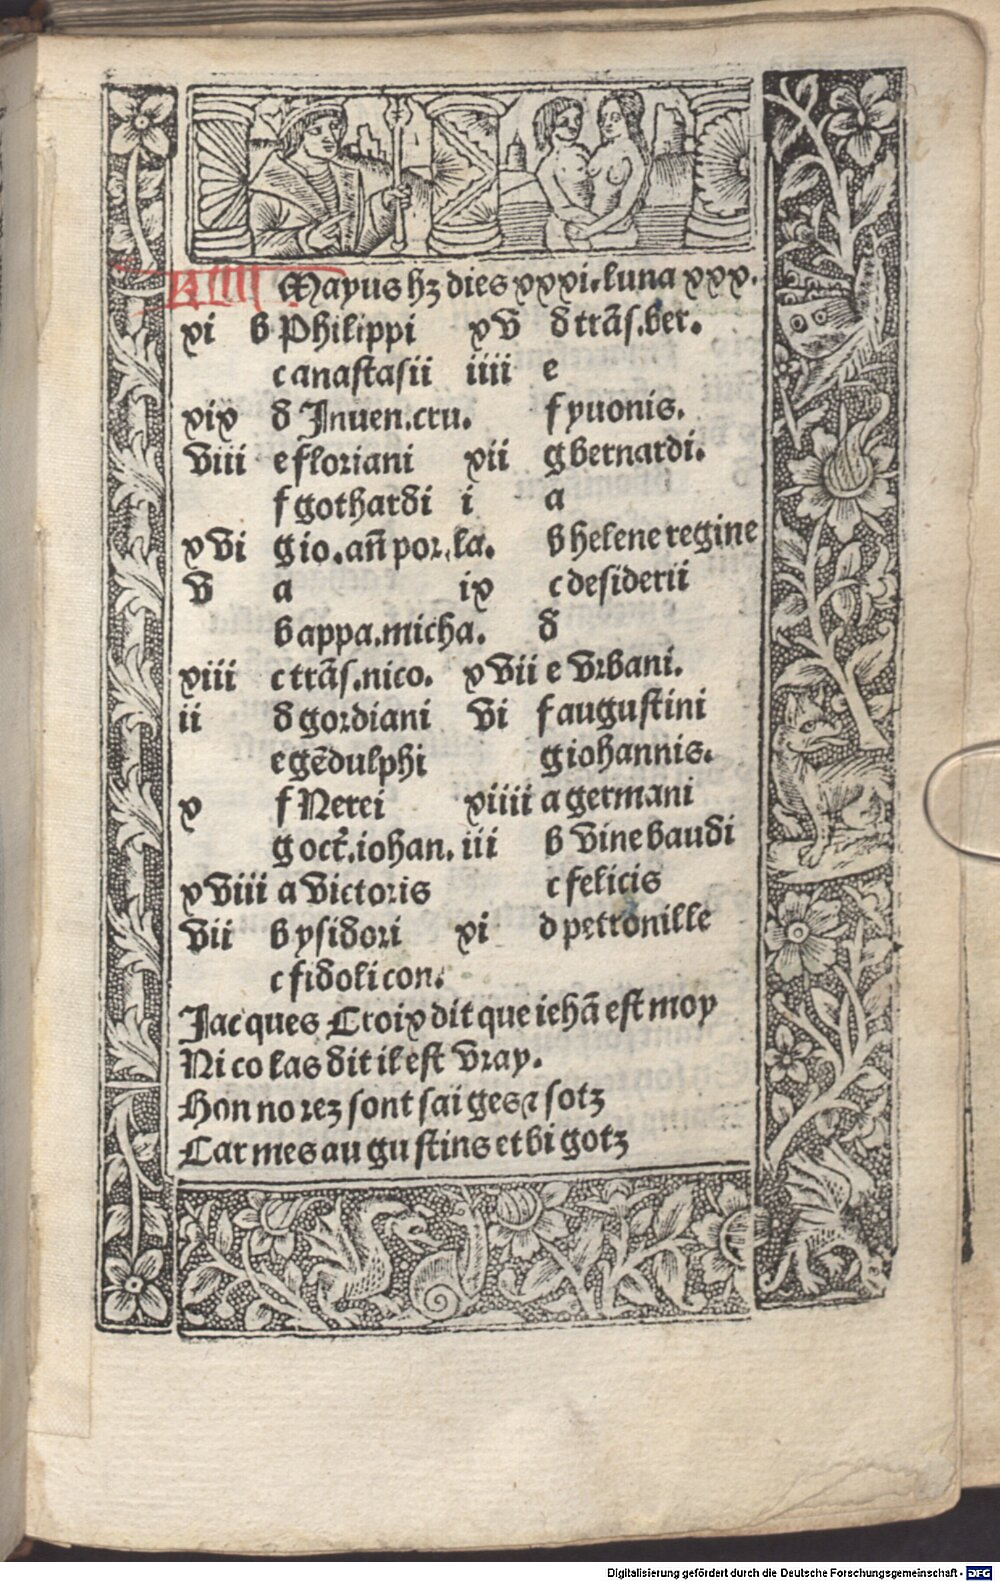 Kl Mayus hꝫ dies xxxi. luna xxx.
xi b Philippi xv d trãs. ber.
c anastasii iiii e
xix d Inuen. cru. f yuonis.
viii e floriani xii g bernardi.
f gothardi i a
xvi g io. añ por. la. b helene regine
v a ix c desiderii
b appa. micha. d
xiii c trãs. nico. xvii e vrbani.
ii d gordiani vi f augustini
e gẽdulphi g iohannis.
x f Nerei xiiii a germani
g oct. iohan. iii b vinebaudi
xviii a victoris c felicis
vii b ysidori xi d petronille
c fidoli con.
Jacques Croix dit que iehã est moy
Nicolas dit il est vray.
Honnorez sont saiges ⁊ sotz
Carmes augustins et bigotz
Digitalisierung gefördert durch die Deutsche Forschungsgemeinschaft - DFG